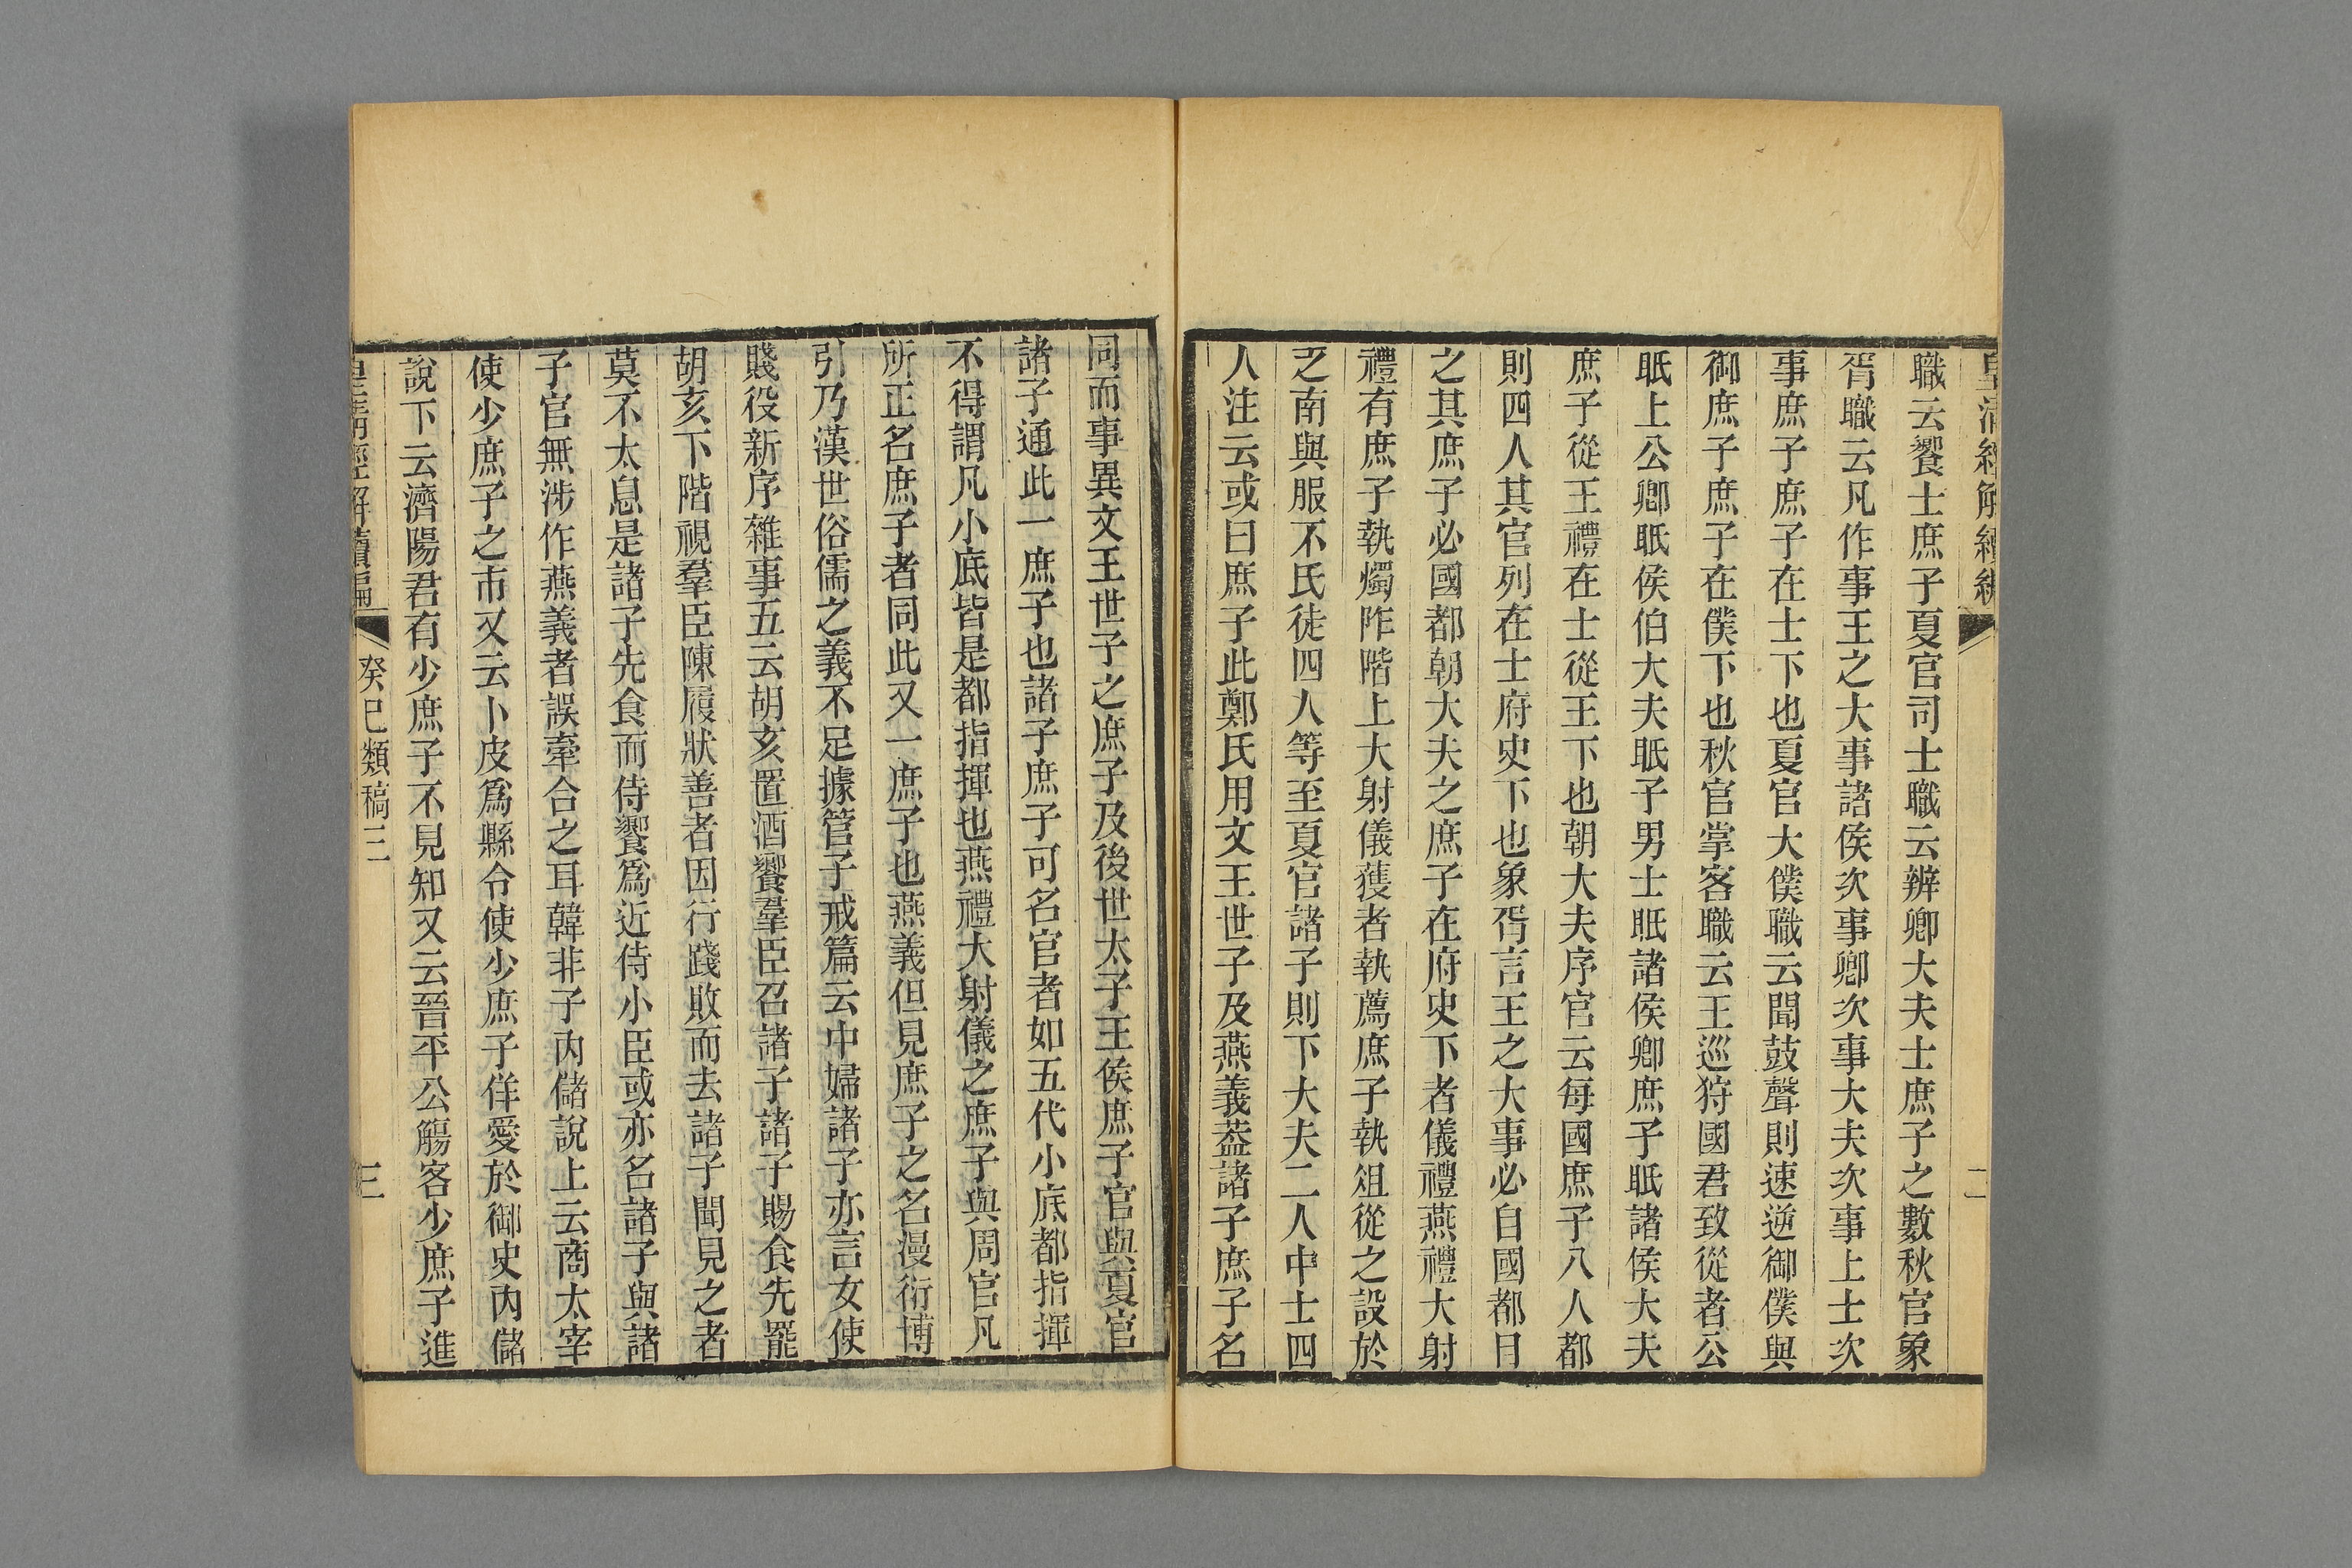 皇清經解續編
二
職云饗士庶子夏官司士職云辨卿大夫士庶子之數秋官象
胥職云凡作事王之大事諸侯次事卿次事大夫次事上士次
事庶子庶子在士下也夏官大僕職云聞鼓聲則速逆御僕與
御庶子庶子在僕下也秋官掌客職云王巡狩國君致從者公
眂上公卿眂侯伯大夫眂子男士眂諸侯卿庶子眂諸侯大夫
庶子從王禮在士從王下也朝大夫序官云每國庶子八人都
則四人其官列在士府史下也象胥言王之大事必自國都日
之其庶子必國都朝大夫之庶子在府史下者儀禮燕禮大射
禮有庶子執燭阼階上大射儀獲者執薦庶子執俎從之設於
乏南與服不氏徒四人等至夏官諸子則下大夫二人中士四
人注云或曰庶子此鄭氏用文王世子及燕義葢諸子庶子名
同而事異文王世子之庶子及後世太子王侯庶子官與夏官
諸子通此一庶子也諸子庶子可名官者如五代小底都指揮
不得謂凡小底皆是都指揮也燕禮大射儀之庶子與周官凡
所正名庶子者同此又一庶子也燕義但見庶子之名漫衍博
引乃漢世俗儒之義不足據管子戒篇云中婦諸子亦言女使
賤役新序雜事五云胡亥置酒饗羣臣召諸子諸子賜食先罷
胡亥下階視羣臣陳履狀善者因行踐敗而去諸子聞見之者
莫不太息是諸子先食而侍饗爲近侍小臣或亦名諸子與諸
子官無涉作燕義者誤牽合之耳韓非子內儲說上云商太宰
使少庶子之市又云卜皮爲縣令使少庶子佯愛於御史內儲
說下云濟陽君有少庶子不見知又云晉平公觴客少庶子進
皇清經解續編
癸巳類稿三
三